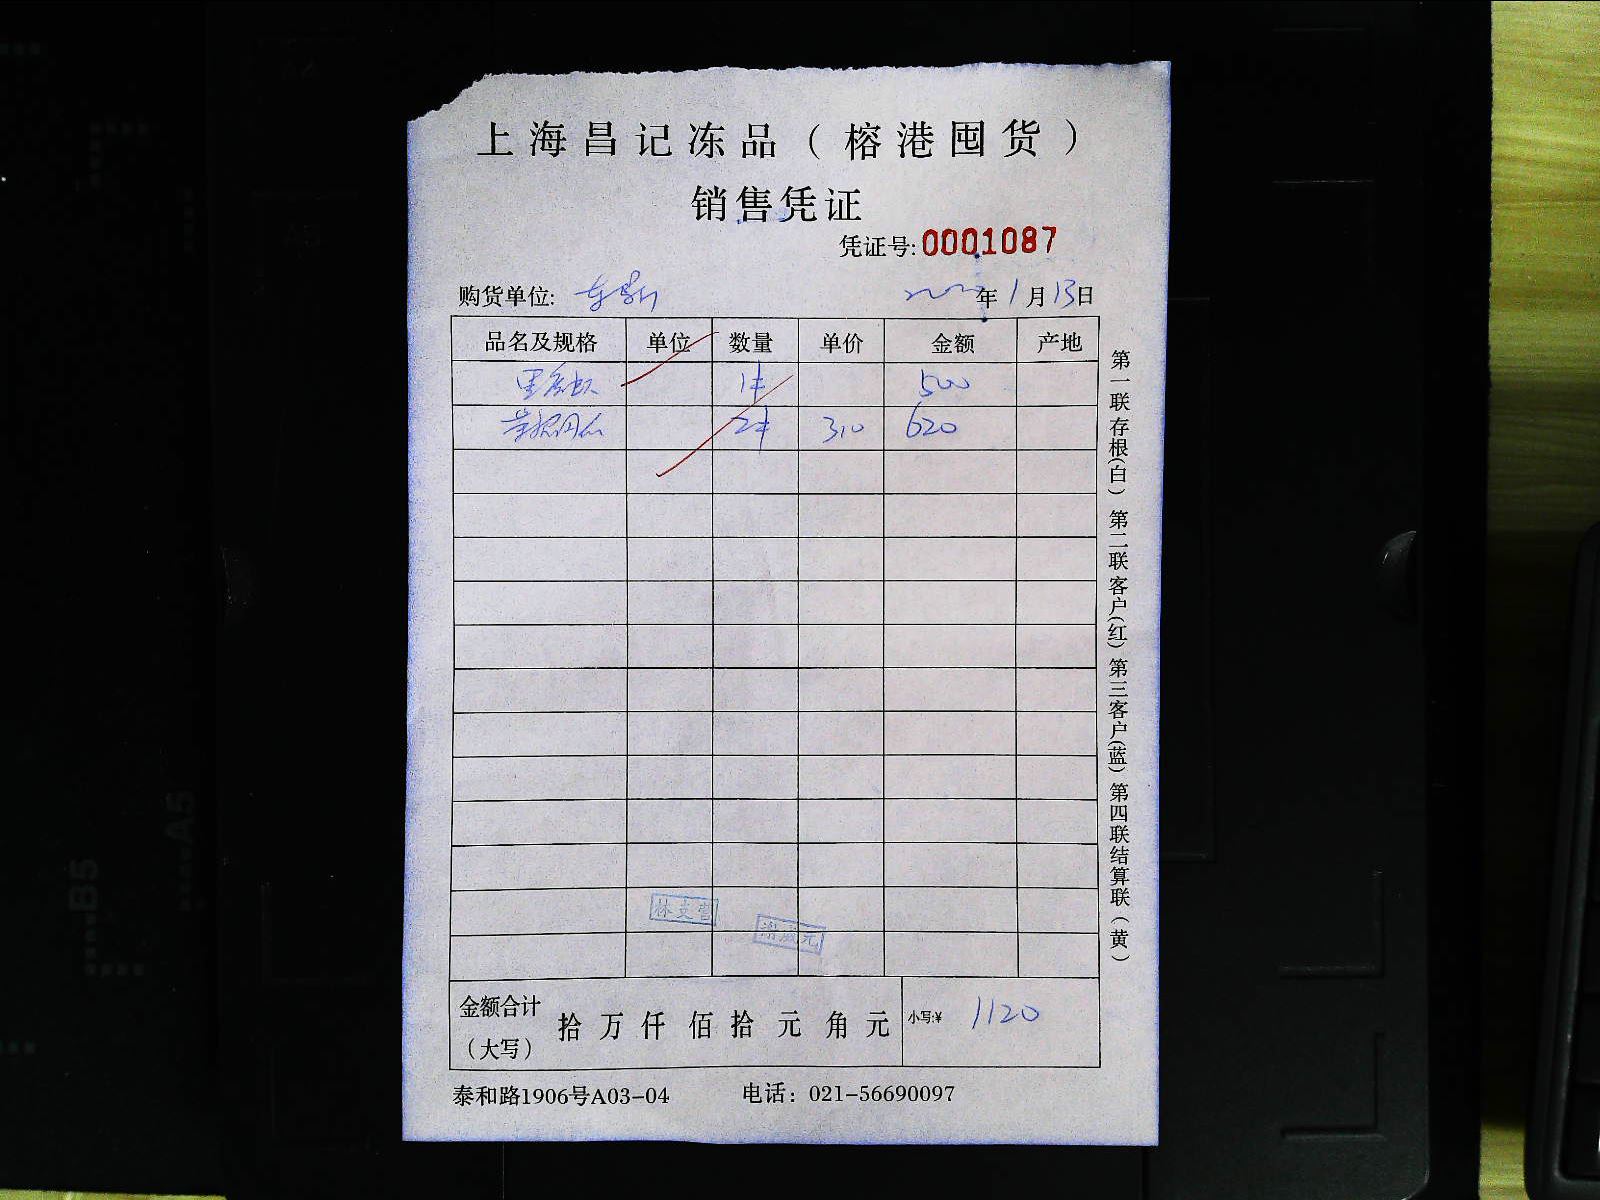 上海昌记冻品（榕港囤货）
销售凭证
凭证号:0001087
购货单位: 年1月13日
品名及规格 单位 数量 单价 金额 产地
1件 500
2件 310 620
金额合计（大写） 拾 万 仟 佰 拾 元 角 元 小写:¥ 1120
泰和路1906号A03-04 电话：021-56690097
第一联存根(白) 第二联客户(红) 第三客户(蓝) 第四联结算联(黄)
B5
A5